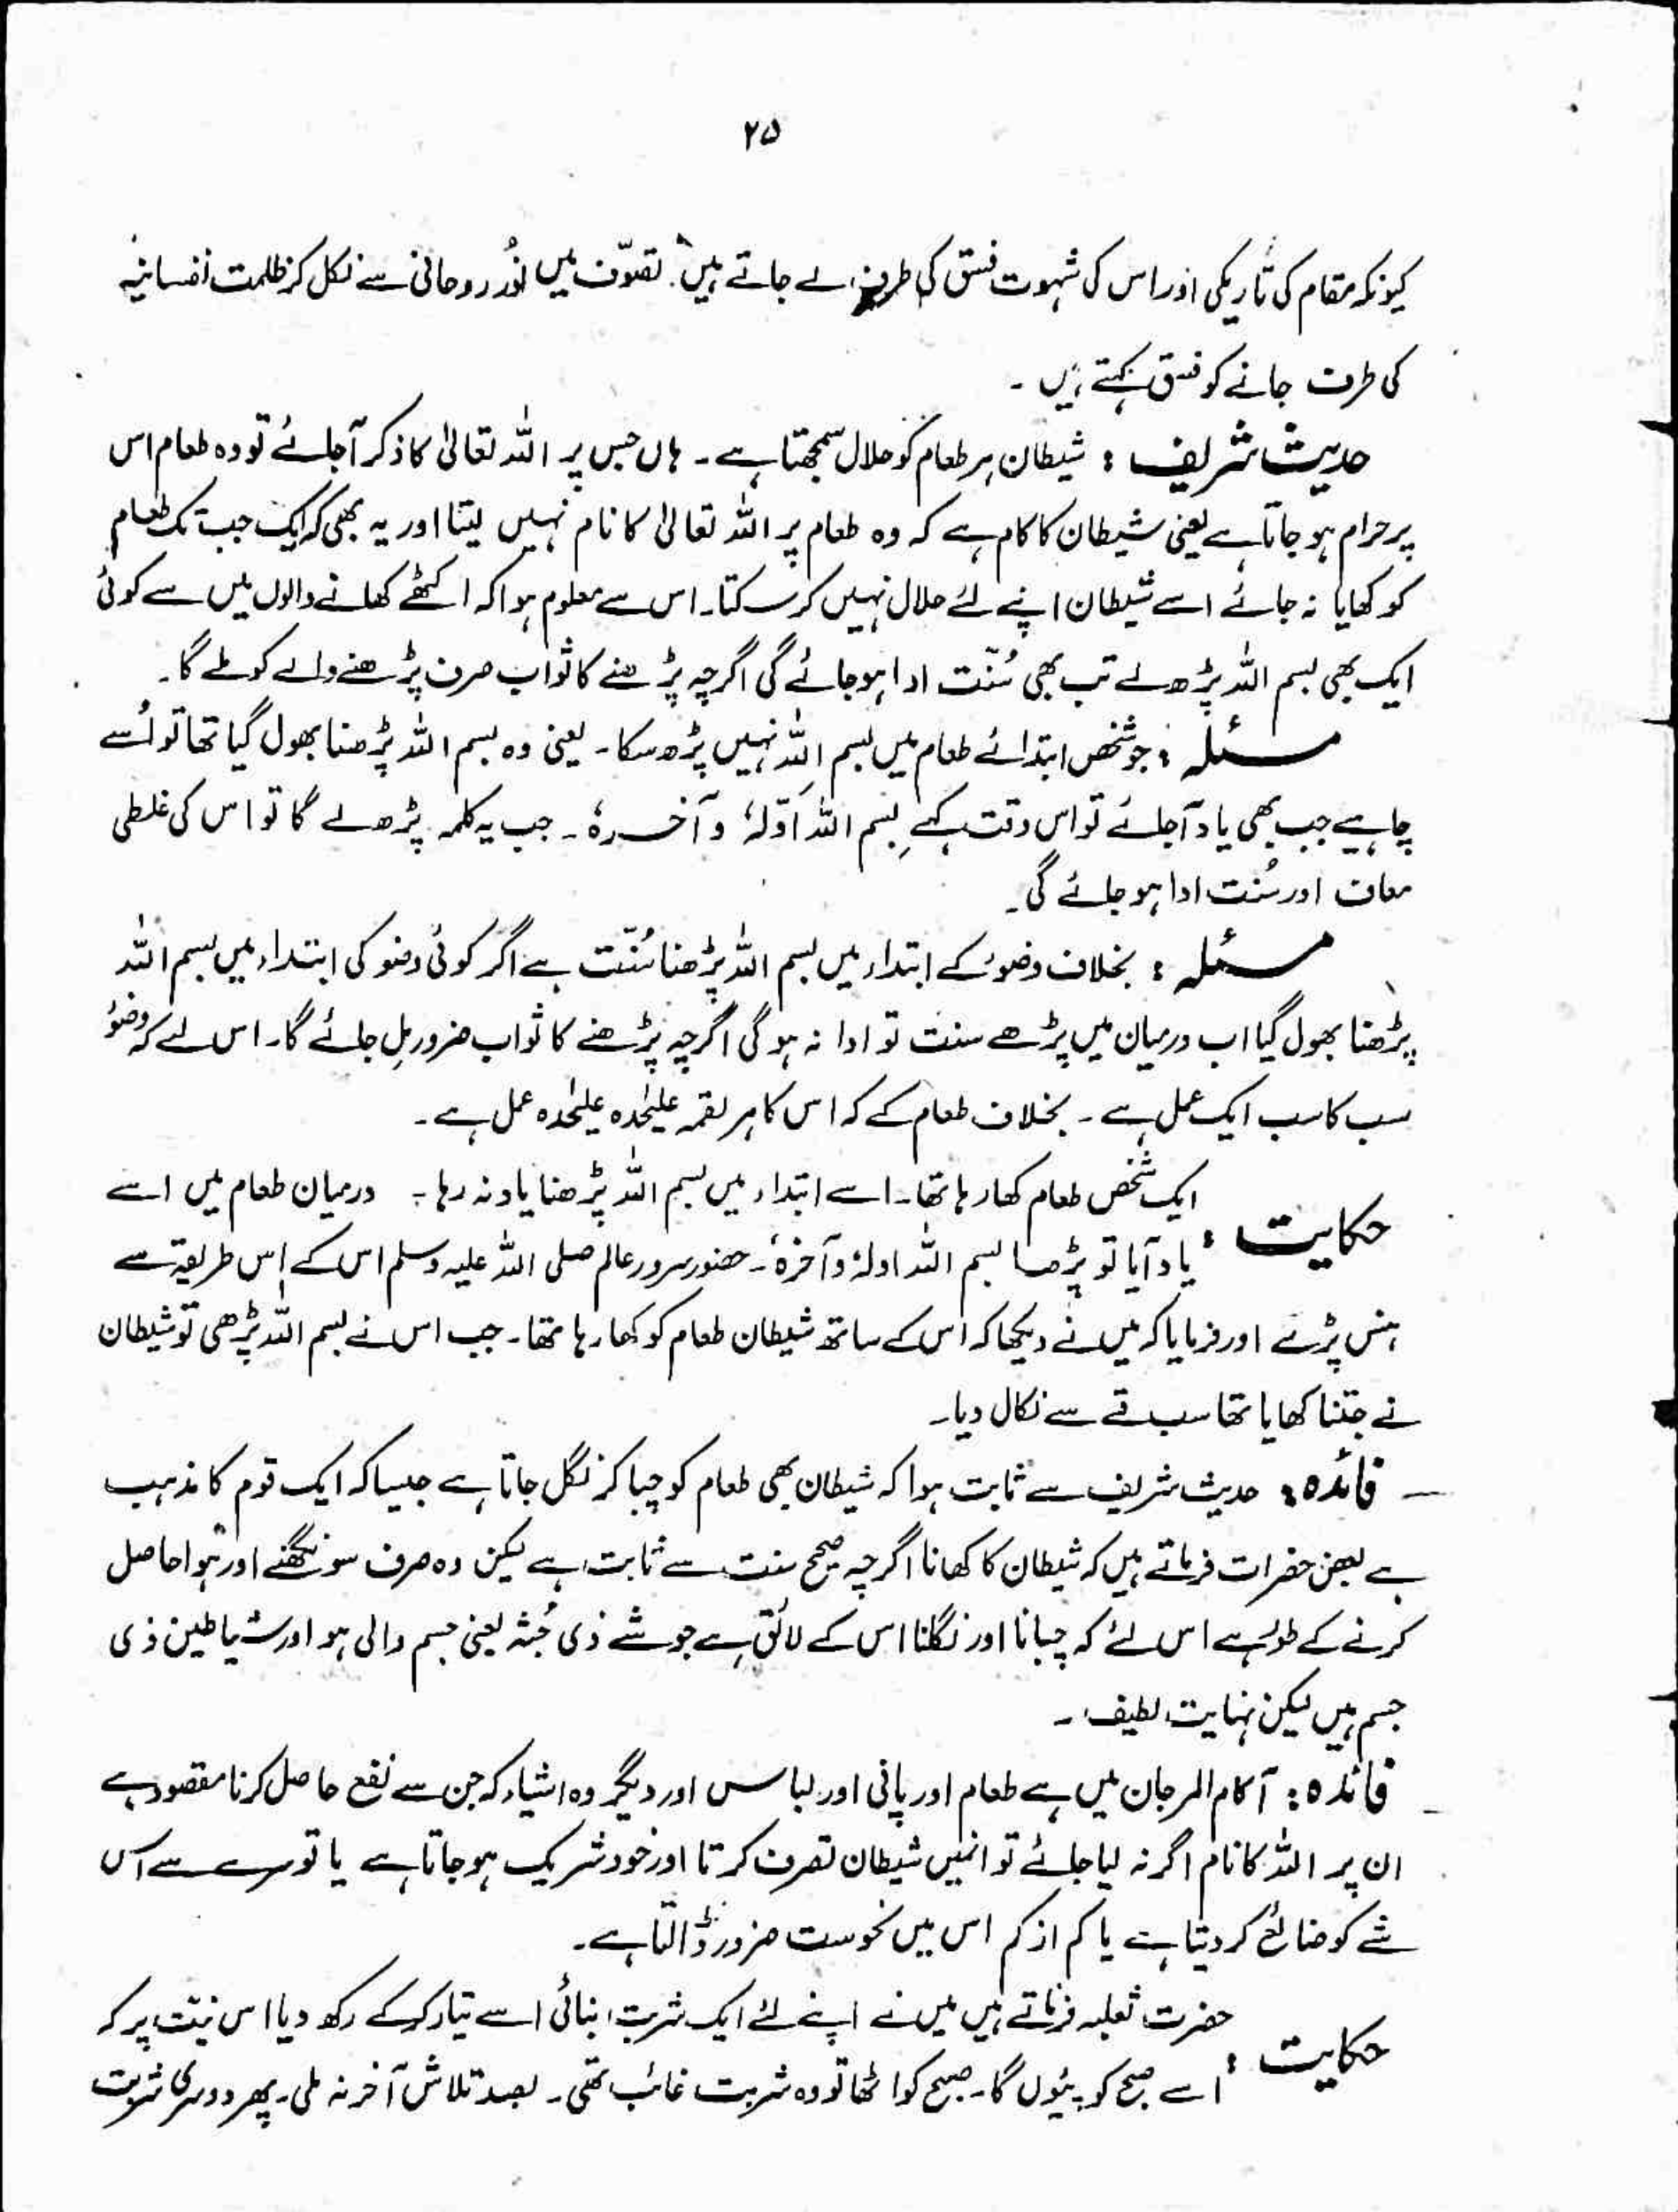 ۲۵
کیونکہ مقام کی تاریکی اور اس کی شہوت فسق کی طرف لے جاتے ہیں۔ تصوّف میں نُور روحانی سے نکل کر ظلمت نفسانیہ
کی طرف جانے کو فسق کہتے ہیں ۔
حدیث شریف : شیطان ہر طعام کو حلال سمجھتا ہے ۔ ہاں جس پر اللہ تعالیٰ کا ذکر آجائے تو وہ طعام اس
پر حرام ہو جاتا ہے یعنی شیطان کا کام ہے کہ وہ طعام پر اللہ تعالیٰ کا نام نہیں لیتا اور یہ بھی کہ ایک جب تک طعام
کو کھایا نہ جائے اسے شیطان اپنے لئے حلال نہیں کر سکتا۔ اس سے معلوم ہوا کہ اکٹھے کھانے والوں میں سے کوئی
ایک بھی بسم اللہ پڑھ لے تب بھی سُنّت ادا ہو جائے گی اگرچہ پڑھنے کا ثواب صرف پڑھنے والے کو ملے گا۔
مسئلہ : جو شخص ابتدائے طعام میں بسم اللہ نہیں پڑھ سکا ۔ یعنی وہ بسم اللہ پڑھنا بھول گیا تھا تو اُسے
چاہیے جب بھی یاد آجائے تو اس وقت کہے بِسم اللہ اَوّلہٗ و آخرہٗ ۔ جب یہ کلمہ پڑھ لے گا تو اس کی غلطی
معاف اور سُنت ادا ہو جائے گی۔
مسئلہ : بخلاف وضوء کے ابتداء میں بسم اللہ پڑھنا سُنّت ہے اگر کوئی وضو کی ابتداء میں بسم اللہ
پڑھنا بھول گیا اب درمیان میں پڑھے سنت تو ادا نہ ہو گی اگرچہ پڑھنے کا ثواب ضرور مِل جائے گا۔ اس لے کہ وضوُ
سب کا سب ایک عمل ہے ۔ بخلاف طعام کے کہ اس کا ہر لقمہ علیٰحدہ علیٰحدہ عمل ہے ۔
حکایت : ایک شخص طعام کھا رہا تھا۔ اسے ابتداء میں بسم اللہ پڑھنا یاد نہ رہا ۔ درمیان طعام میں اسے
یاد آیا تو پڑھا بسم اللہ اولہٗ و آخرہٗ۔ حضور سرور عالم صلی اللہ علیہ وسلم اس کے اِس طریقہ سے
ہنس پڑے اور فرمایا کہ میں نے دیکھا کہ اس کے ساتھ شیطان طعام کو کھا رہا تھا۔ جب اس نے بسم اللہ پڑھی تو شیطان
نے جتنا کھایا تھا سب قے سے نکال دیا۔
فائدہ : حدیث شریف سے ثابت ہوا کہ شیطان بھی طعام کو چبا کر نگل جاتا ہے جیسا کہ ایک قوم کا مذہب
ہے بعض حضرات فرماتے ہیں کہ شیطان کا کھانا اگرچہ صحیح سنت سے ثابت ہے لیکن وہ صرف سونگھنے اور ہوا حاصل
کرنے کے طور ہے اس لئے کہ چبانا اور نگلنا اس کے لائق ہے جو شے ذی جُثہ یعنی جسم والی ہو اور شیاطین ذی
جسم ہیں لیکن نہایت لطیف ۔
فائدہ : آکام المرجان میں ہے طعام اور پانی اور لباس اور دیگر وہ اشیاء کہ جن سے نفع حاصل کرنا مقصود ہے
ان پر اللہ کا نام اگر نہ لیا جائے تو انہیں شیطان تصرف کرتا اور خود شریک ہو جاتا ہے یا تو سرے سے اس
شے کو ضائع کر دیتا ہے یا کم از کم اس میں نحوست ضرور ڈالتا ہے۔
حکایت : حضرت ثعلبہ فرماتے ہیں میں نے اپنے لئے ایک شربت بنائی اسے تیار کرکے رکھ دیا اس نیّت پر کہ
اسے صبح کو پیئوں گا۔ صبح کو اٹھا تو وہ شربت غائب تھی۔ بعد تلاش آخر نہ ملی۔ پھر دوسری شربت